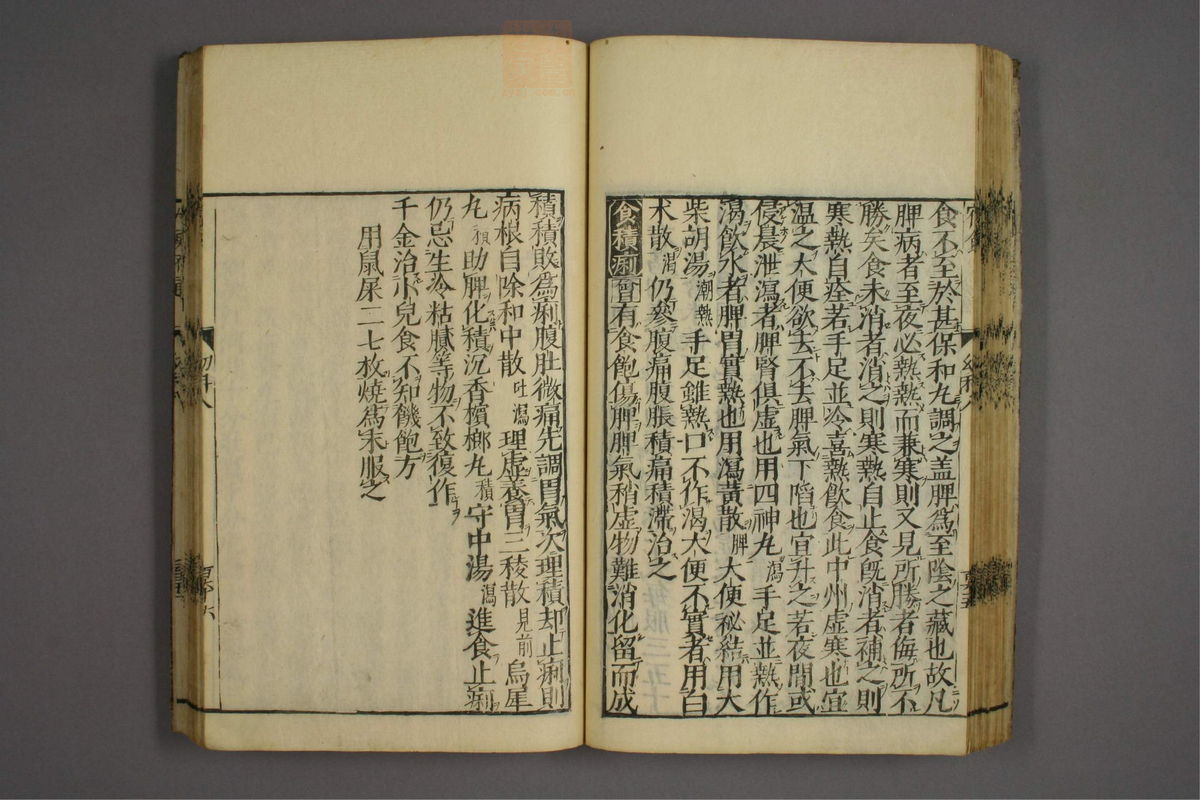 食不至於甚保和丸調之盖脾爲至陰之藏也故凡
脾病者至夜必熱熱而兼寒則又見所勝者侮所不
勝矣食未消者消之則寒熱自止食既消者補之則
寒熱自痊若手足並冷喜熱飲食此中州虚寒也宜
温之大便欲去不去脾氣下陷也宜升之若夜間或
侵晨泄瀉者脾腎俱虚也用四神丸瀉手足並熱作
渴飲水者脾胃實熱也用瀉黄散脾大便秘結用大
柴胡湯潮熱手足雖熱口不作渴大便不實者用白
术散渴仍參腹痛腹脹積痛積滯治之
食積痢會有食飽傷脾脾氣稍虚物難消化留而成
積積敗爲痢腹肚微痛先調胃氣次理積却止痢則
病根自除和中散吐瀉理虚養胃三稜散見前烏犀
丸助脾化積沉香檳榔丸積守中湯瀉進食止痢
仍忌生冷粘膩等物不致復作
千金治小兒食不知饑飽方
用鼠屎二七枚燒爲末服之